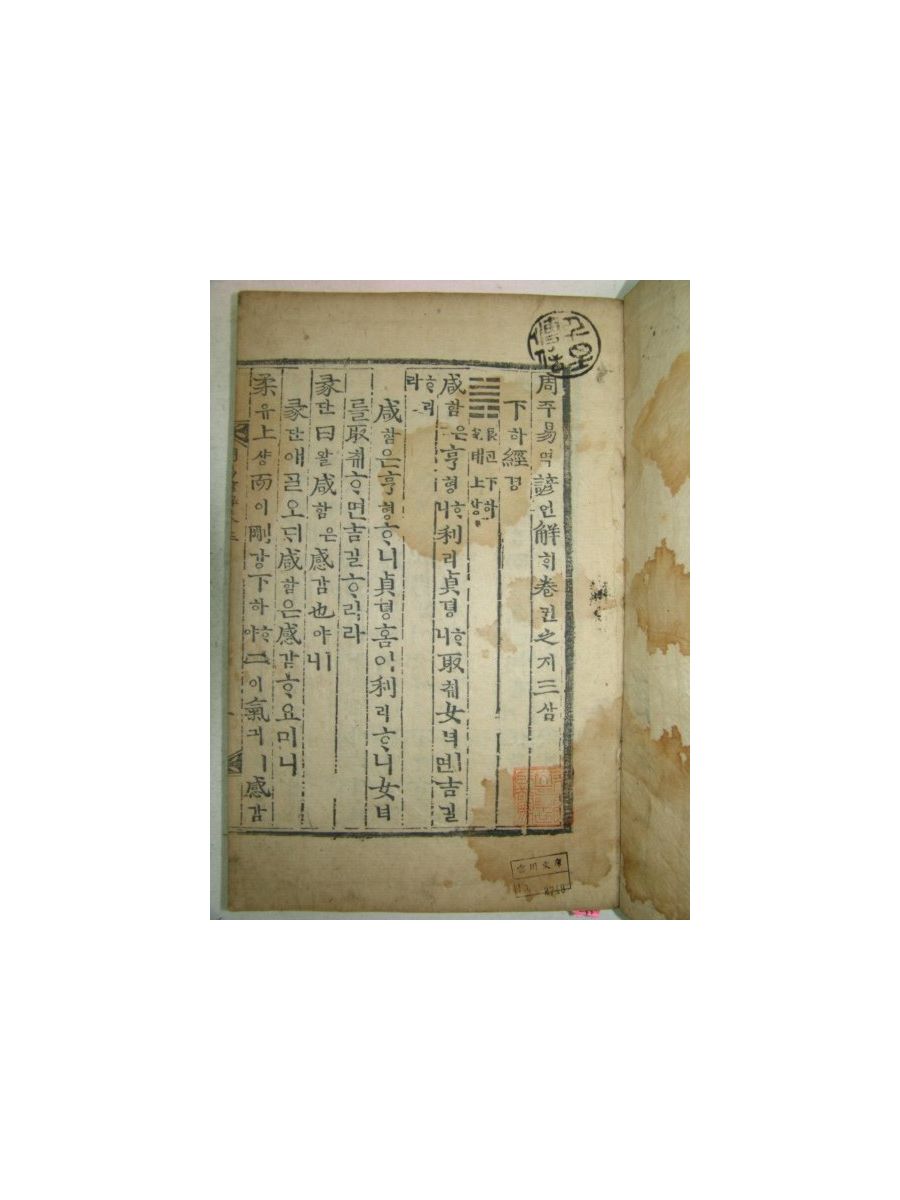 周쥬易역諺언解ᄒᆡ卷권之지三삼
下하經경
艮간下하
兌태上샹
咸함은亨형ᄒᆞ니利리貞뎡ᄒᆞ니取ᄎᆔ女녀ㅣ면吉길
ᄒᆞ리라
咸함은亨형ᄒᆞ니貞뎡홈이利리ᄒᆞ니女녀
를取ᄎᆔᄒᆞ면吉길ᄒᆞ리라
彖단曰왈咸함은感감也야ㅣ니
彖단애ᄀᆞᆯ오ᄃᆡ咸함은感감홈이니
柔유上샹而이剛강下하ᄒᆞ야二이氣긔ㅣ感감